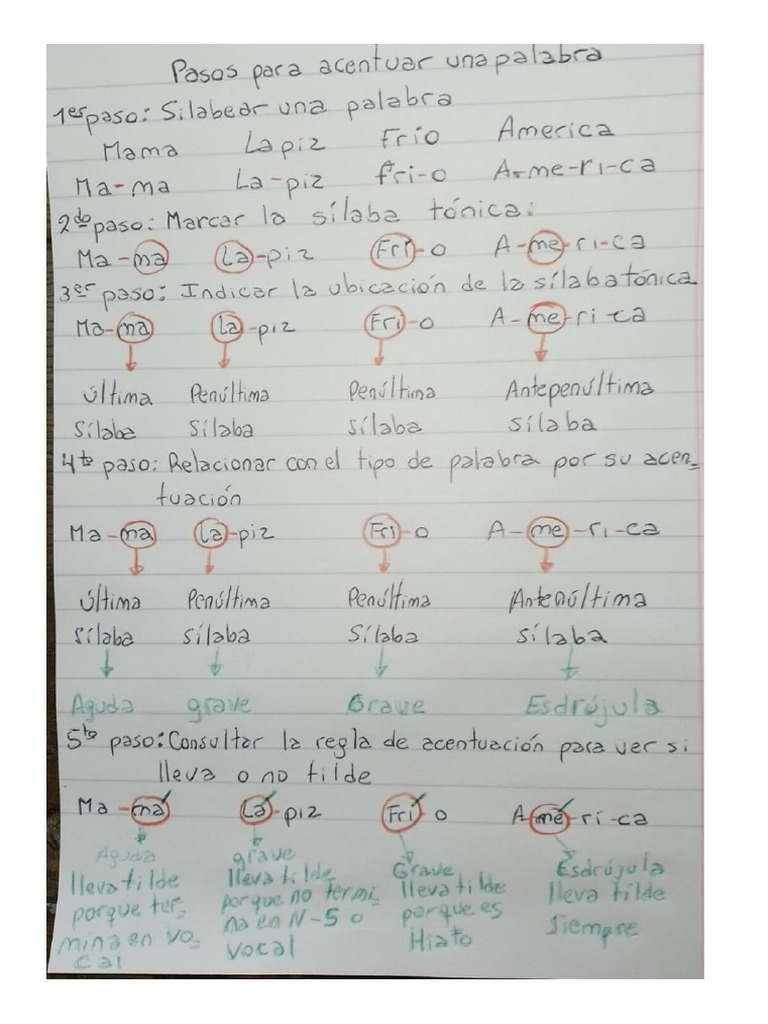 Pasos para acentuar una palabra
1er paso: Silabear una palabra
Mama Lapiz Frio America
Ma-ma La-piz fri-o A-me-ri-ca
2do paso: Marcar la sílaba tónica:
Ma-ma La-piz Fri-o A-me-ri-ca
3er paso: Indicar la ubicación de la sílaba tónica
Ma-ma La-piz Fri-o A-me-ri-ca
última Penúltima Penúltima Antepenúltima
Sílaba Sílaba Sílaba sílaba
4to paso: Relacionar con el tipo de palabra por su acen-
tuación
Ma-ma La-piz Fri-o A-me-ri-ca
última Penúltima Penúltima Antenúltima
sílaba sílaba Sílaba sílaba
Aguda grave Grave Esdrújula
5to paso: Consultar la regla de acentuación para ver si
lleva o no tilde
Ma-má Lá-piz Frí o A-mé-ri-ca
Aguda grave Grave Esdrújula
lleva tilde lleva tilde lleva tilde lleva tilde
porque ter- porque no termi- porque es Siempre
mina en vo- na en N-S o Hiato
cal vocal